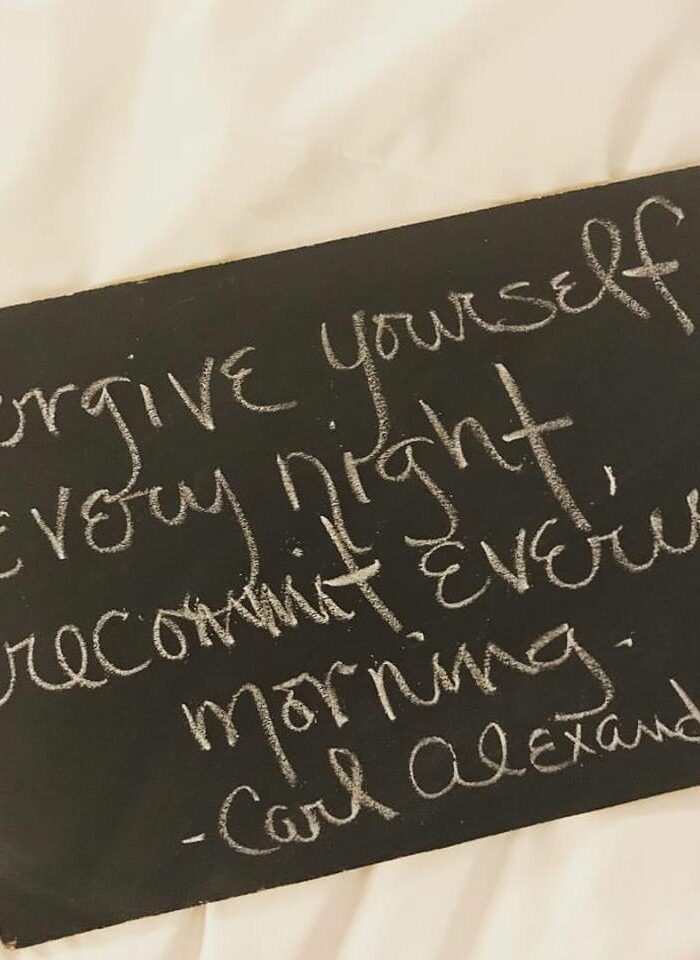 orgive yourself
every night,
recommit every
morning.
-Carl Alexand